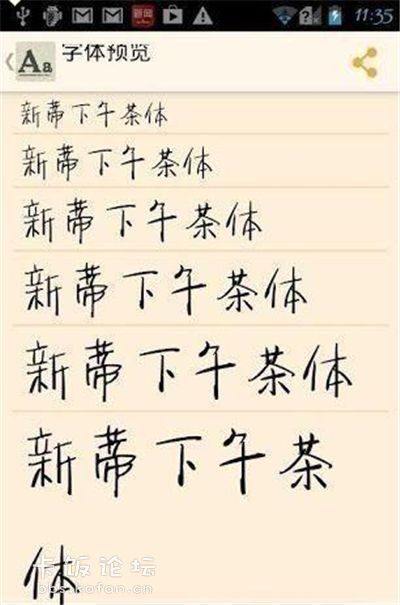 11:35
Aa 字体预览
新蒂下午茶体
新蒂下午茶体
新蒂下午茶体
新蒂下午茶体
新蒂下午茶体
新蒂下午茶
体
卡饭论坛
bbs.kafan.cn